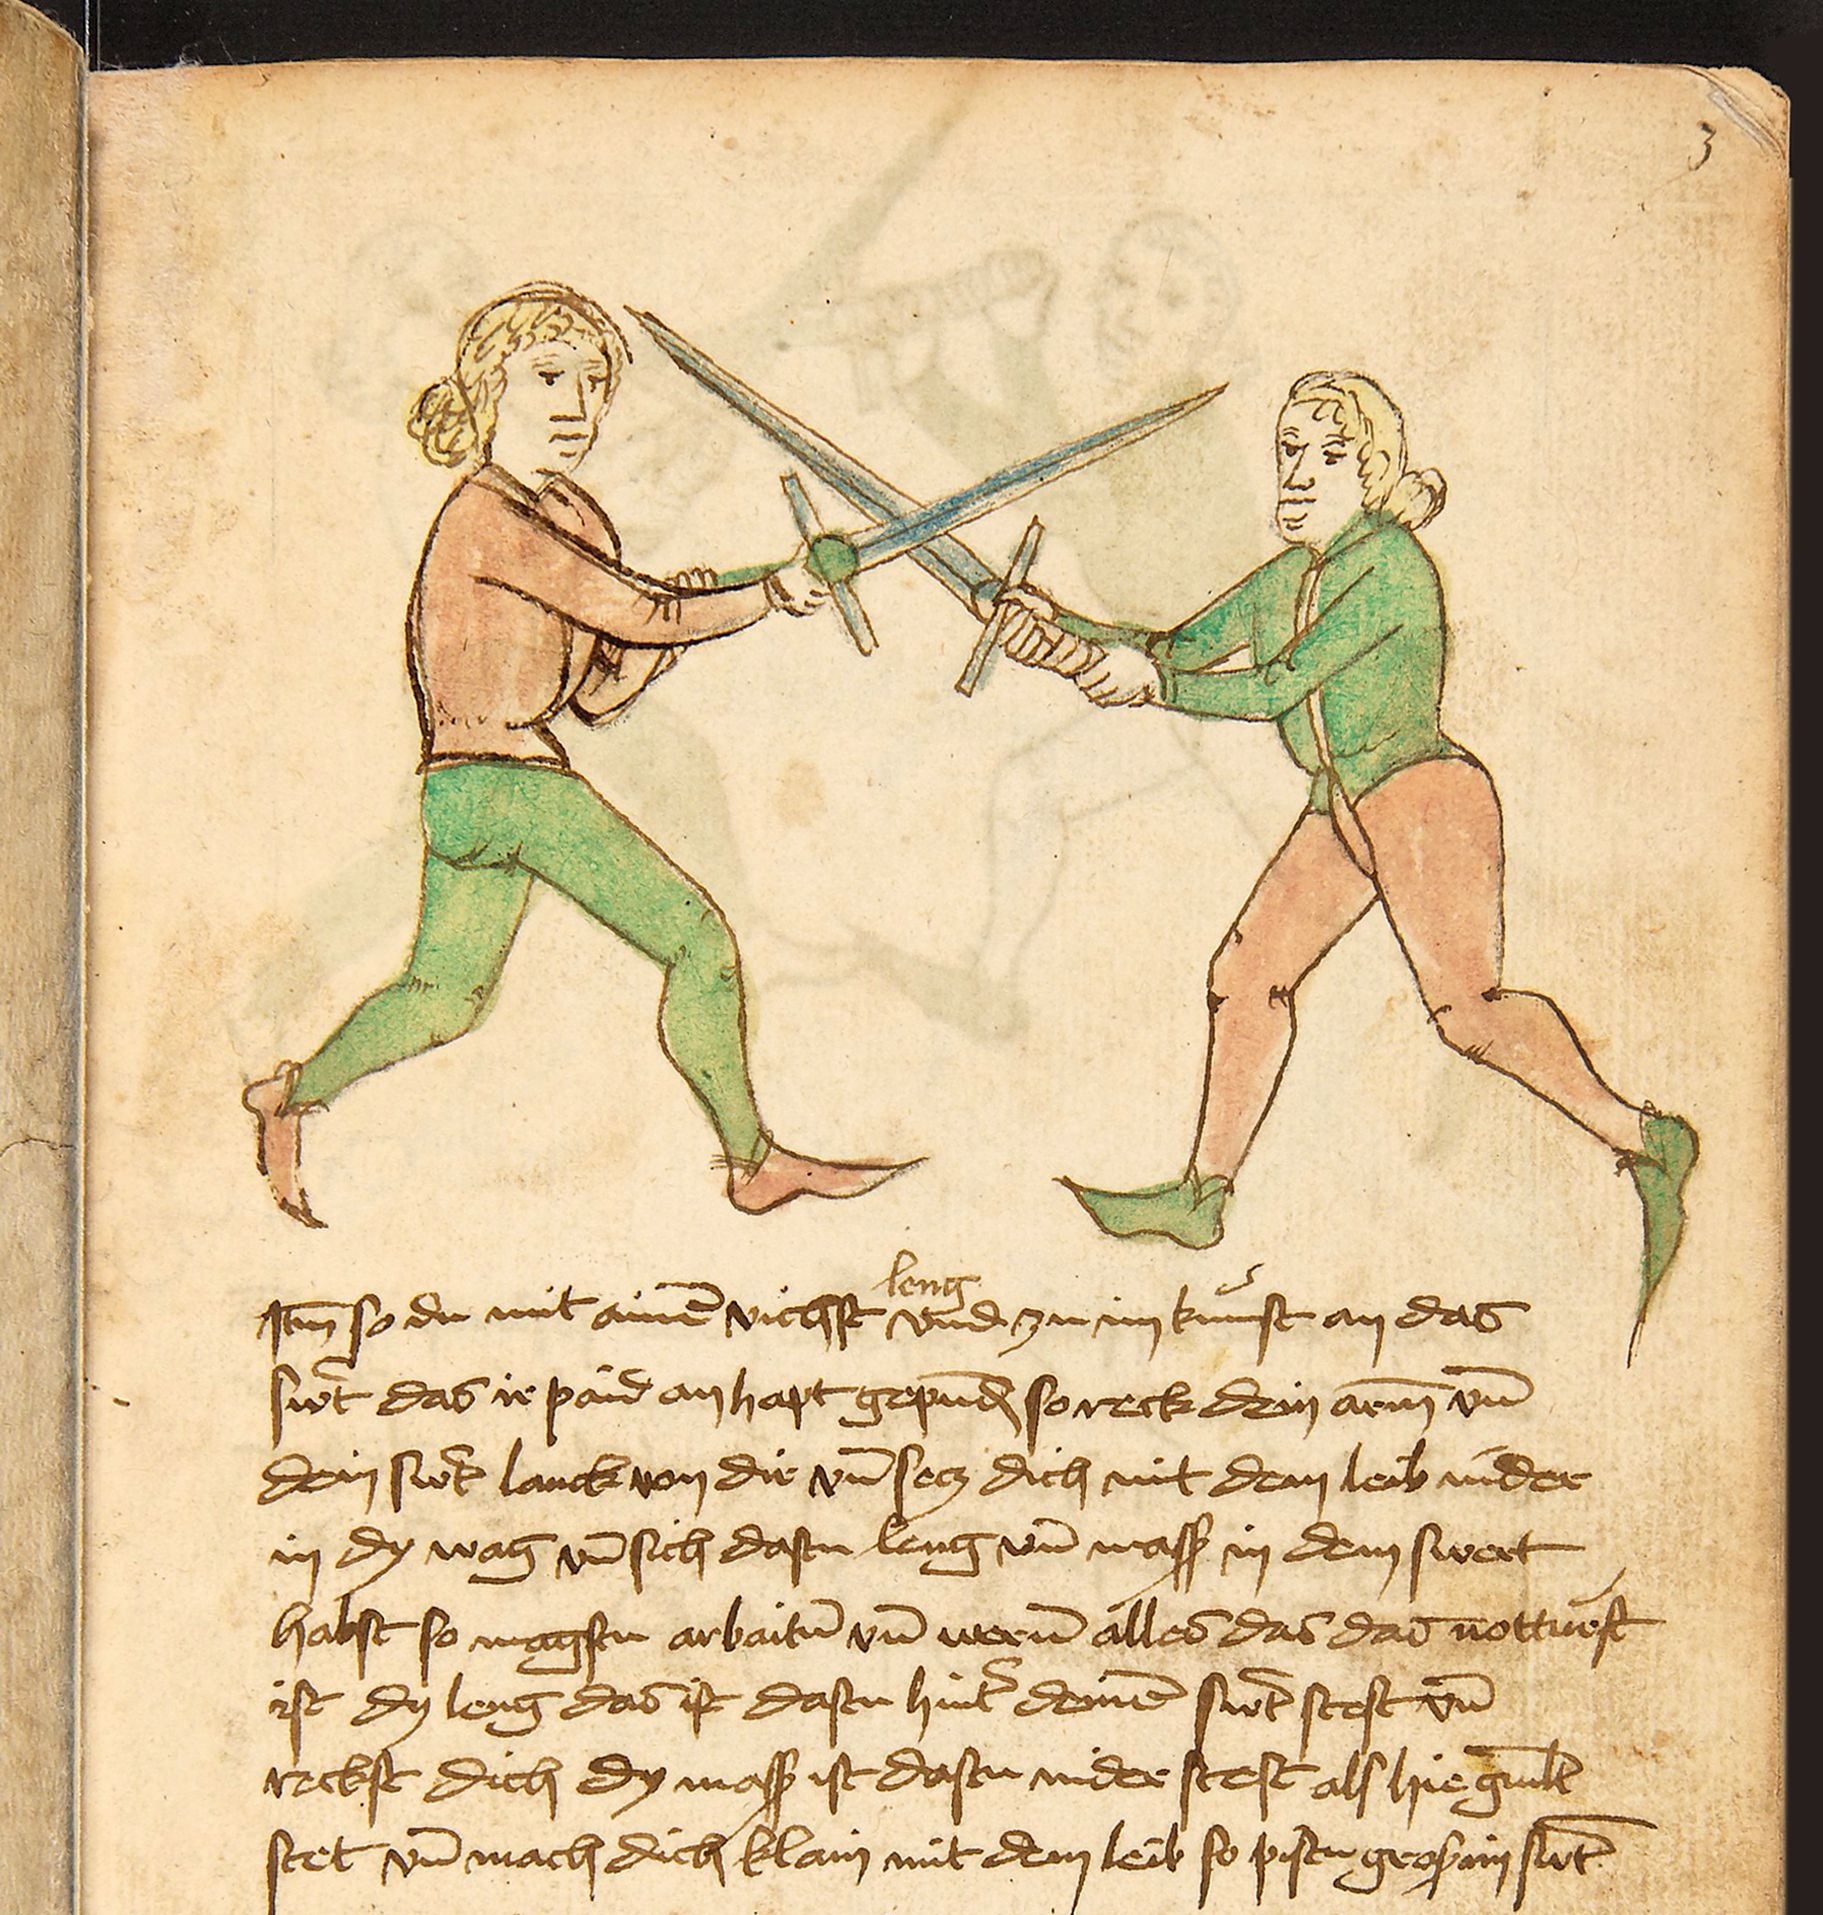 3
leng
Itm̄ so du mit ainē vichst vnd zu im kumst an das
swt̄ das ir paid an hapt gepundn̄ so reck dein arm̄ vn̄
dein swt̄ lanck von dir vn̄ secz dich mit dem leib nider
in dy wag vn̄ sich dastu leng vn̄ mass in dem swert
habst so magstu arbaitn̄ vn̄ wern̄ alles das das notturft
ist dy leng das ist dastu hint̄ deinē swt̄ stest vn̄
reckst dich dy mass ist dastu nider stest als hie gmālt
stet vn̄ mach dich klain mit dem leib so pistu gros im swt̄